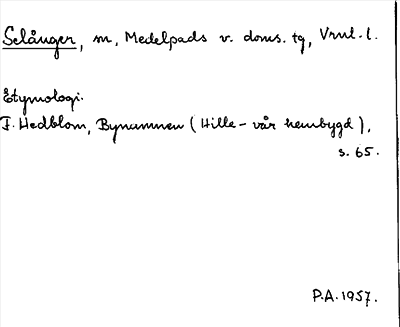 Selånger, m, Medelpads v. doms. tg, Vrnl. l.
Etymologi.
F. Hedblom, Bynamnen (Hille - vår hembygd),
s. 65.
P.A. 1957.